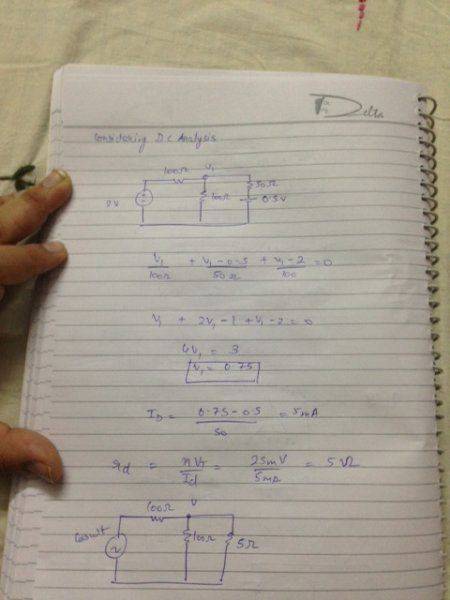 Delta
Considering DC Analysis
100Ω V₁
50Ω
2V 100Ω 0.5V
V₁/100Ω + V₁-0.5/50Ω + V₁-2/100 = 0
V₁ + 2V₁-1 + V₁-2 = 0
4V₁ = 3
V₁ = 0.75
I_D = 0.75-0.5/50 = 5mA
r_d = nV_T/I_d = 25mV/5mA = 5Ω
100Ω V
coswt 100Ω 5Ω